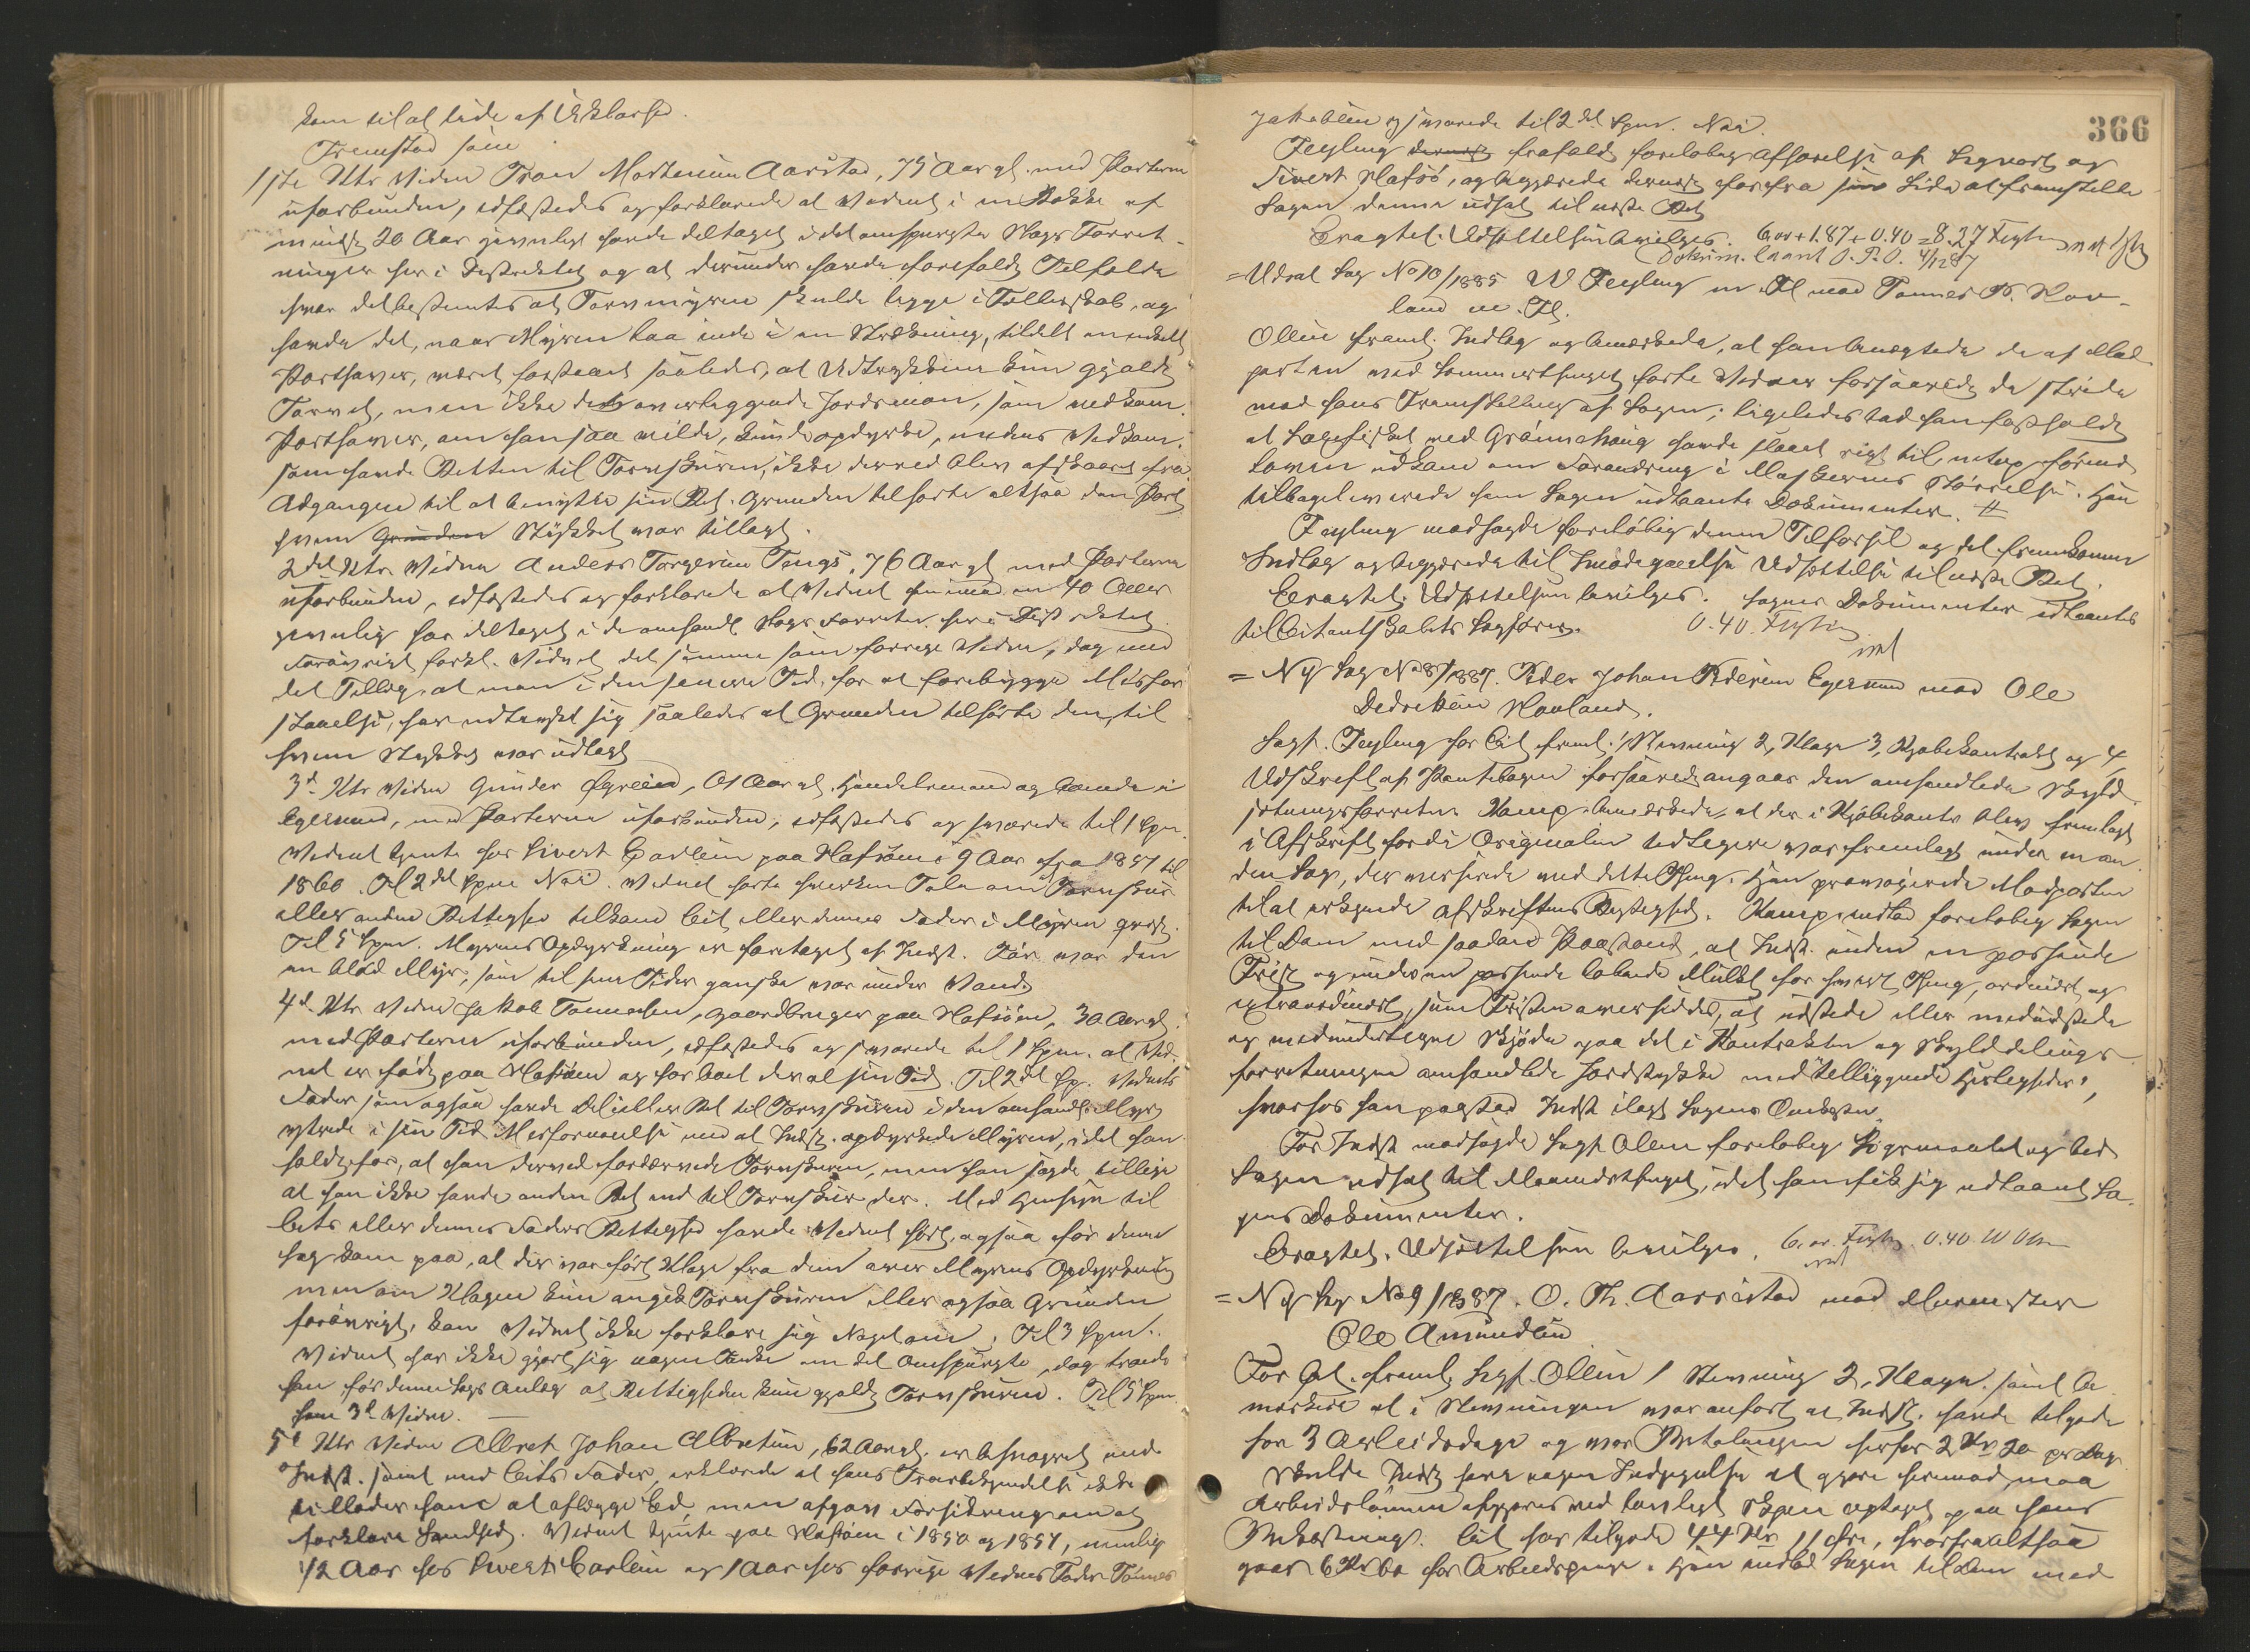 kom til at lide af Uklarhed.
Fremstod som
1ste Ktr Vidne Tron Mortensen Aarstad, 75 Aar gl. med Parterne
uforbunden, edfæstedes og forklarede at Vidnet i en Række af
mindst 20 Aar jevnligt havde deltaget i det omspurgte Slags Forret-
ninger her i Distriktet og at derunder havde forefaldt Tilfælde
hvor det bestemtes at Torvmyren skulde ligge i Fællesskab, og
havde det, naar Myren laa inde i en Strækning, tildelt en enkelt
Parthaver, været forstaaet saaledes, at Udtrykket kun gjaldt
Torvet, men ikke det overliggende Jordsmon, som vedkom.
Parthaver, om han saa vilde, kunde opdyrke, medens Vedkom.
som havde Retten til Torvskuren, ikke derved blev afskaaret fra
Adgangen til at benytte sin Ret. Grunden tilhørte altsaa den Part
hvem Grunden Stykket var tillagt.
2det Ktr. Vidne Anders Torgersen Tengs, 76 Aar gl. med Parterne
uforbunden, edfæstedes og forklarede at Vidnet i en 40 Aar
jevnlig har deltaget i de omhandl. Slags Forretn. her i Distriktet.
Forøvrigt forkl. Vidnet det samme som forrige Vidne, dog med
det Tillæg, at man i den senere Tid, for at forebygge Misfor-
staaelse, har udtrykt sig saaledes at Grunden tilhørte den, til
hvem Stykket var udlagt
3d Ktr Vidne Gunder Egreid, Aar gl. Handelsmand og boende i
Egersund, med Parterne uforbunden, edfæstedes og svarede til 1 Spm.
Vidnet tjente hos Sivert Carlsen paa Hafsøen i 9 Aar fra 1857 til
1860. Til 2det Spm Nei. Vidnet hørte hverken Tale om at Torvskur
eller anden Rettighed tilkom Cit. eller dennes Fader i Myren
Til 5 Spm. Myrens Opdyrkning er foretaget af Indst. Før var den
en blød Myr, som til sine Tider ganske var under Vand.
4d Ktr Vidne Jakob Tønnesen, Gaardbruger paa Hafsøen, 30 Aar gl.
med Parterne uforbunden, edfæstedes og svarede til 1 Spm. at Vid-
net er født paa Hafsøen og har boet der al sin Tid. Til 2det Sp. Vidnets
Fader som ogsaa havde Del eller Ret til Torvskuren i den omhandl. Myr
ytrede i sin Tid Misfornøielse med at Indst. opdyrkede Myren, idet han
holdt for, at han derved fordærvede Torvskuren, men han sagde tillige
at han ikke havde anden Ret end til Torvskur der. Med Hensyn til
Cits eller dennes Faders Rettighed havde Vidnet hørt, ogsaa før denne
Sag kom paa, at der var ført Klage fra dem over Myrens Opdyrkning
men om Klagen kun angik Torvskuren eller ogsaa Grunden
forøvrigt, kan Vidnet ikke forklare sig Noget om. Til 3 Spm.
Vidnet har ikke gjort sig nogen Tanke om det Omspurgte, dog troede
han før denne Sags Anlæg at Rettigheden kun gjaldt Torvskuren. Til 5 Spm
som 3d Vidne. —
5t Ktr Vidne Albret Johan Albretsen, 62 Aar gl. er besvogret med
Indst. samt med Cits Fader, erklærede at hans Troesbekjendelse ikke
tillader ham at aflægge Ed, men afgav Forsikring om at
forklare Sandhed. Vidnet tjente paa Hafsøen i 1850 og 1851, nemlig
1/2 Aar hos Sivert Carlsen og 1 Aar hos forrige Vidnes Fader Tønnes
366
Jakobsen og svarede til 2det Spm. Nei.
Feyling dernæst frafaldt foreløbig Afhørelse af Sigvart og
Sivert Hafsø, og begjærede dernæst forfra sin Side at fremstille
Sagen denne udsat til næste Ret
Eragtet: Udsættelsen bevilges. 6,00 + 1.87 + 0.40 = 8.27 Feyling
Dokum. laant O.P.O. 4/12 87
= Udsat Sag No 10/1885 W Feyling m. Fl mod Tønnes P. Hov-
land m. Fl.
Ollin freml. Indlæg og bemærkede, at han benegtede de af Mod-
parten ved Sommerthinget førte Vidner forsaavidt de stride
mod hans Fremstilling af Sagen; ligeledes bad han fastholdt
at Laxefisket ved Grønnehaug havde slaaet rigt til, netop førend
Loven udkom om Forandring i Maskernes Størrelse. Han
tilbageleverede ham Sagen udlaante Dokumenter. #
Feyling modsagde foreløbig denne Tilførsel og det fremkomne
Indlæg og begjærede til Imødegaaelse Udsættelse til næste Ret.
Eragtet: Udsættelsen bevilges. Sagens Dokumenter udlaantes
til Citantskabets Sagfører. 0.40. Feyling
= Ny Sag No 8/1887. Peder Johan Pedersen Egersund mod Ole
Dedriksen Hovland.
Sagf. Feyling for Cit freml. 1, Stevning 2, Klage 3, Kjøbekontrakt og 4,
Udskrift af Pantebogen forsaavidt angaar den omhandlede Skyld-
sætningsforretn. Komp. bemærkede, at der i Kjøbekontr. blev fremlagt
i Afskrift fordi Originalen tidligere var fremlagt under en an-
den Sag, der verserede ved dette Thing. Han provoserede Modparten
til at erkjende Afskriftens Rigtighed. Komp. indlod foreløbig Sagen
til Dom med saadan Paastand, at Indst. inden en passende
Frist og under en passende løbende Mulkt for hvert Thing, ordinært og
extraordinært, som Fristen oversiddes, at udstede eller medudstede
og medundertegne Skjøde paa det i Kontrakten og Skylddelings-
forretningen omhandlede Jordstykke med "tilliggende Herligheder",
hvorhos han paastod Indst ilagt Sagens Omkostn.
For Indst modsagde Sagf. Ollin foreløbig Søgsmaalet og bad
Sagen udsat til Maanedsthinget, idet han fik sig udlaant Sa-
gens Dokumenter.
Eragtet. Udsættelsen bevilges. 6.00 Feyling. 0.40
= Ny Sag No 9/1887. O. Th. Aarrestad mod Murmester
Ole Amundsen
For Cit. freml. Sagf. Ollin 1 Stevning 2, Klage. samt be-
mærkede at i Stevningen var anført at Indst. havde tilgode
for 3 Arbeidsdage og var Betalingen herfor 2 Kr 20 pr Dag.
Skulde Indst have nogen Indsigelse at gjøre herimod, maa
Arbeidslønnen afgjøres ved lovligt Skjøn optaget paa hans
Bekostning. Cit har tilgode 44 Kr 11 Øre, hvorfra altsaa
gaar 6 Kr 60 for Arbeidspenge. Han indlod Sagen til Dom med